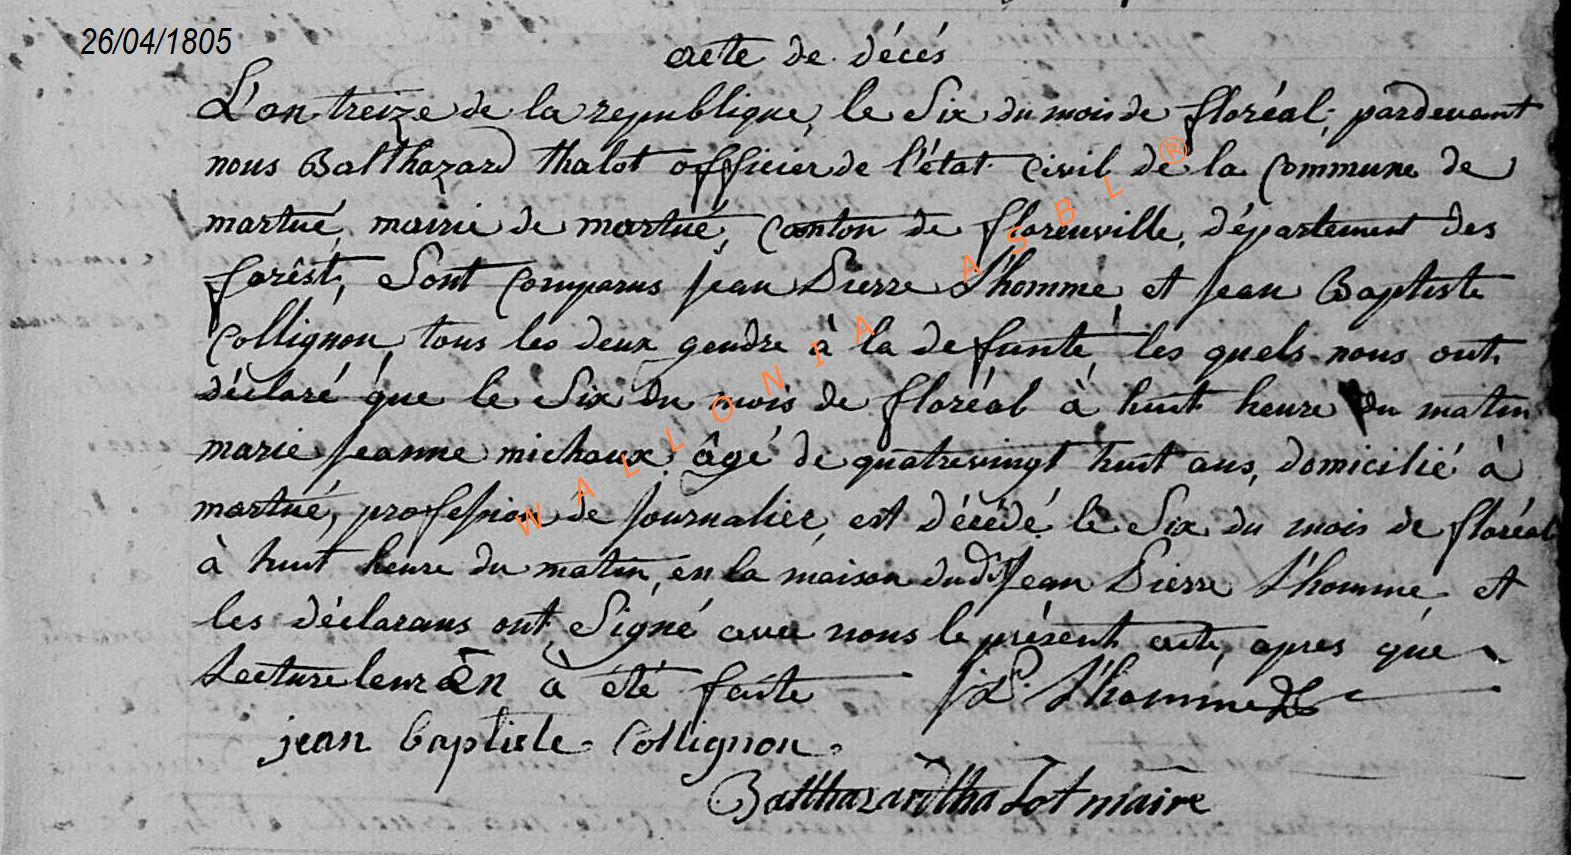 26/04/1805
acte de décés
L'an treize de la republique, le Six du mois de floréal, pardevant
nous Balthazard thalot officier de l'état Civil de la Commune de
martué, mairie de martué, Canton de florenville, département des
forêst, Sont Comparus Jean Pierre L'homme et Jean Baptiste
Collignon, tous les deux gendre à la defunte, les quels nous ont
déclaré que le Six du mois de floréal à huit heure du matin
marie Jeanne michaux âgé de quatrevingt huit ans, domicilié à
martué, profession de Journalier, est décédé le Six du mois de floréal
à huit heure du matin, en la maison dudit Jean Pierre L'homme et
les déclarans ont Signé avec nous le présent acte, apres que
Lecture leur en à été faite J P L'homme
jean baptiste Collignon
Balthazard thalot maire
WALLONIA ASBL ®